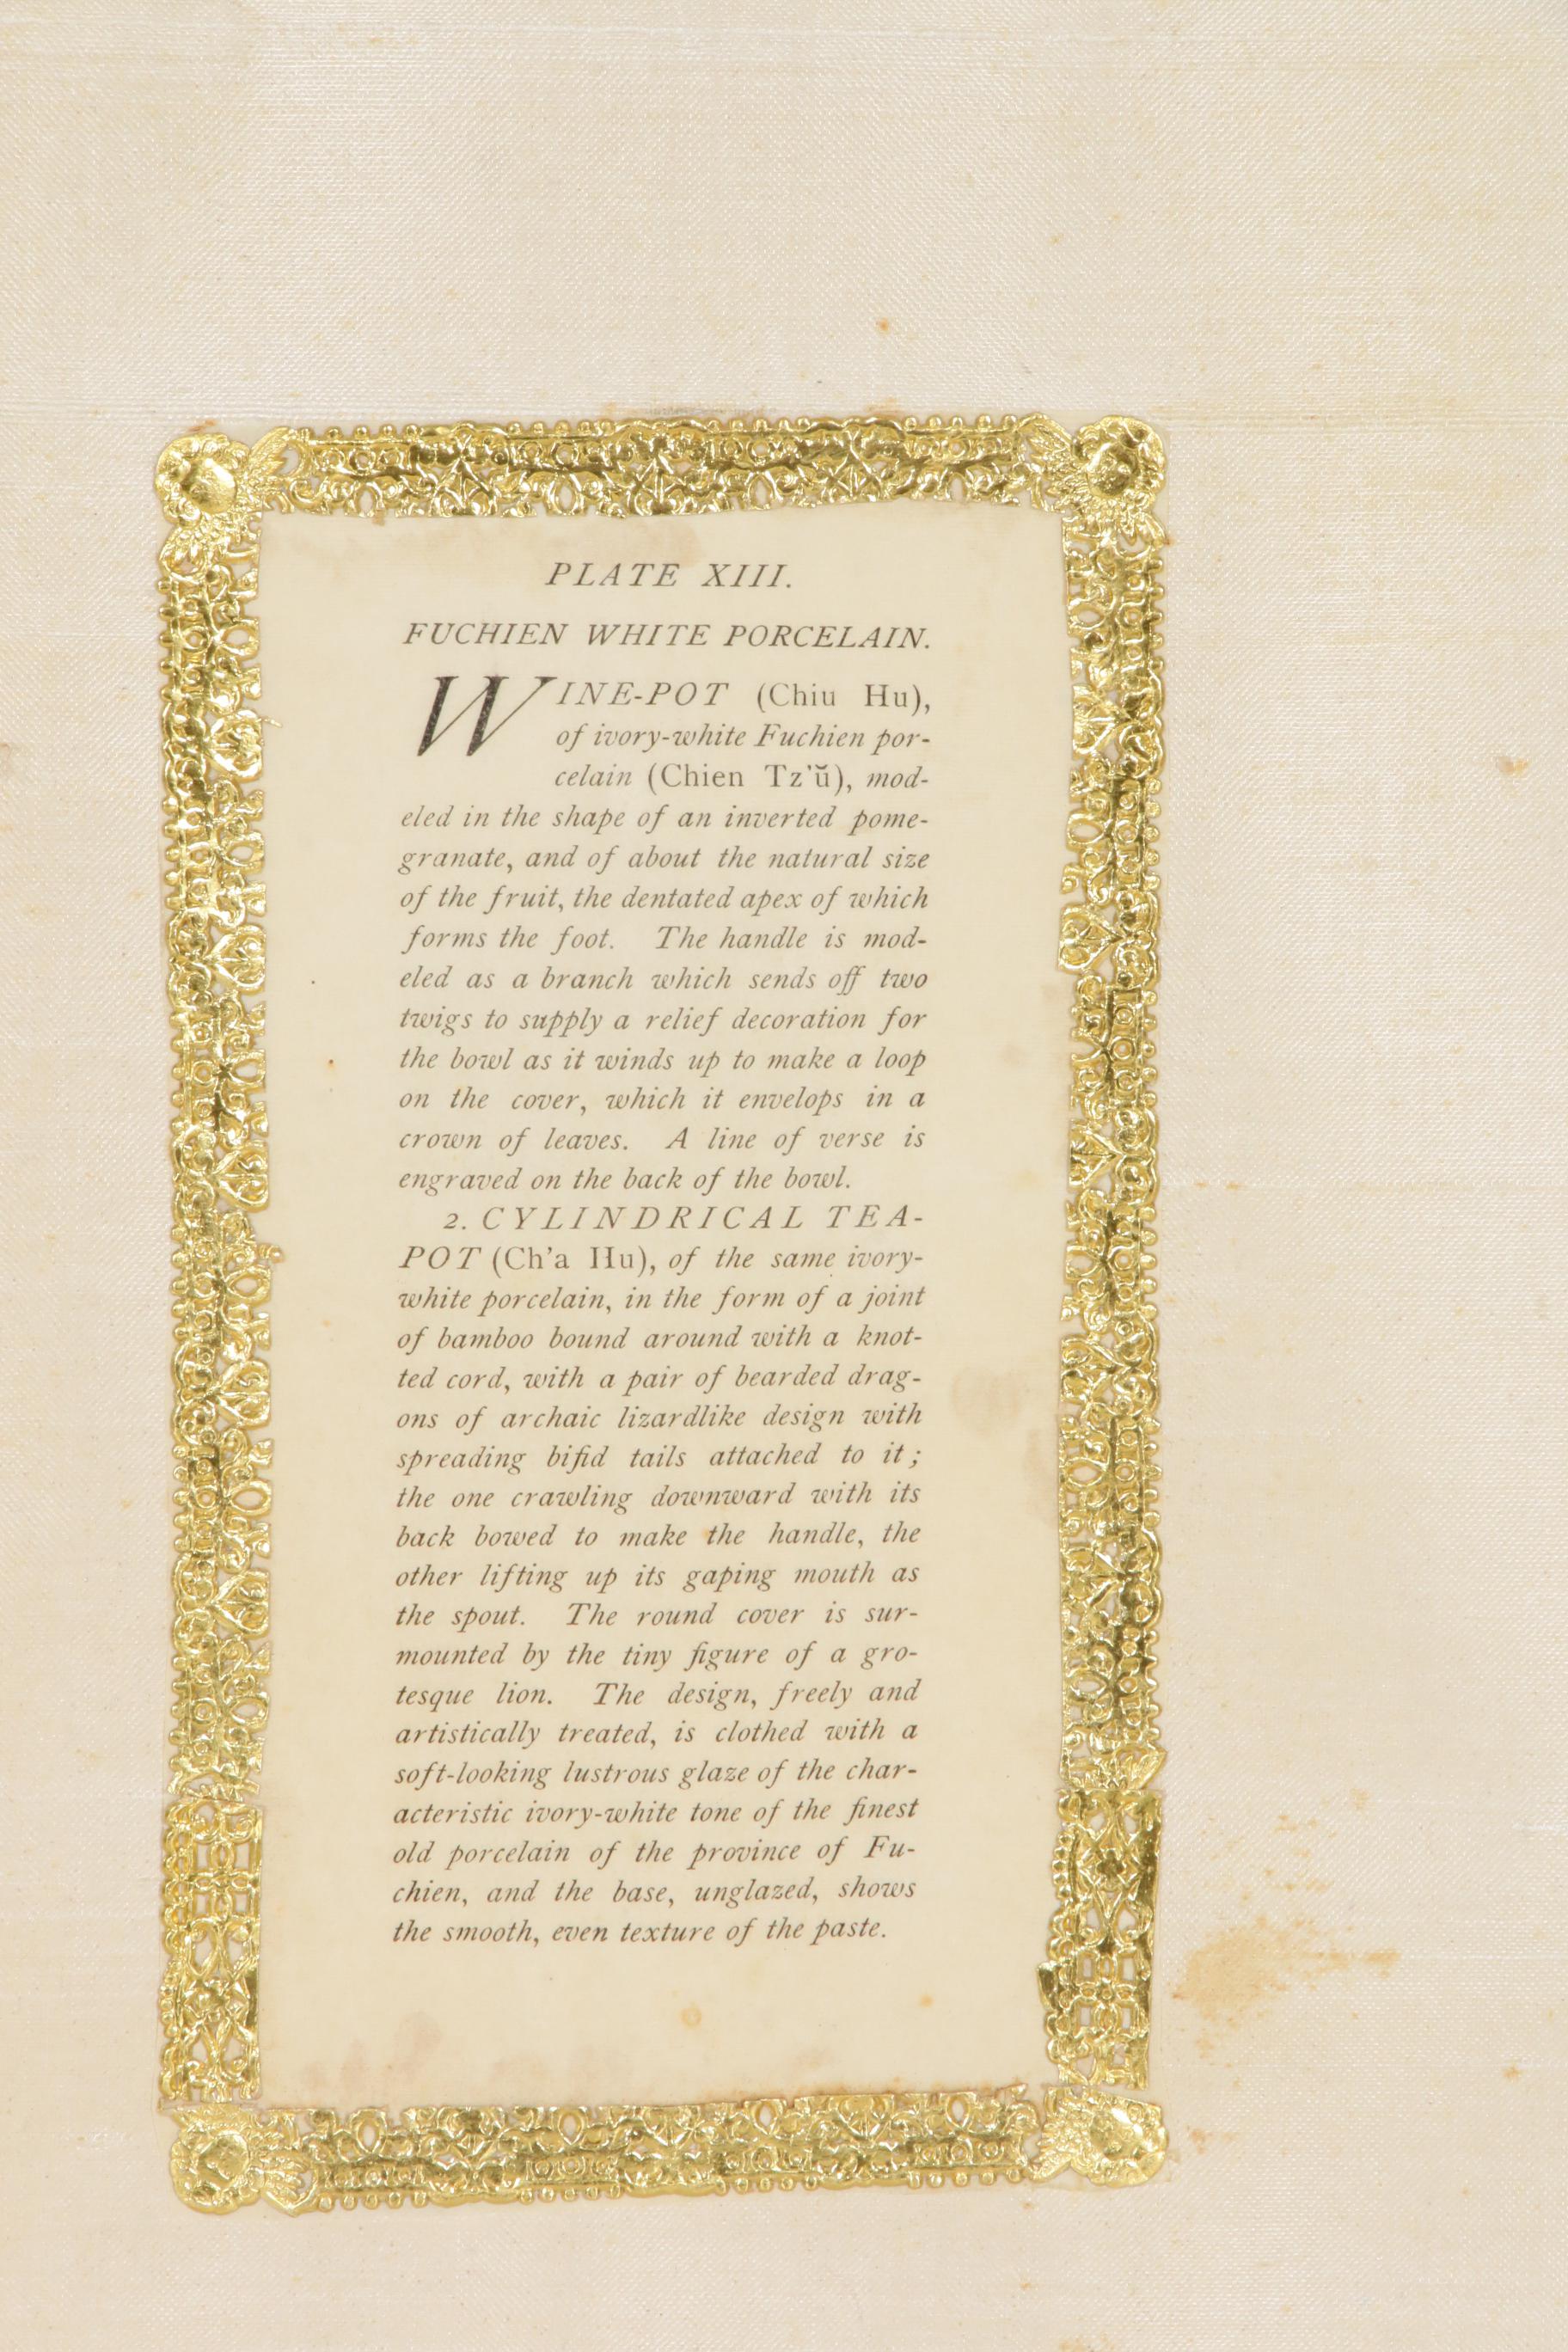 PLATE XIII.
FUCHIEN WHITE PORCELAIN.
WINE-POT (Chiu Hu),
of ivory-white Fuchien por-
celain (Chien Tz'ŭ), mod-
eled in the shape of an inverted pome-
granate, and of about the natural size
of the fruit, the dentated apex of which
forms the foot. The handle is mod-
eled as a branch which sends off two
twigs to supply a relief decoration for
the bowl as it winds up to make a loop
on the cover, which it envelops in a
crown of leaves. A line of verse is
engraved on the back of the bowl.
2. CYLINDRICAL TEA-
POT (Ch'a Hu), of the same ivory-
white porcelain, in the form of a joint
of bamboo bound around with a knot-
ted cord, with a pair of bearded drag-
ons of archaic lizardlike design with
spreading bifid tails attached to it;
the one crawling downward with its
back bowed to make the handle, the
other lifting up its gaping mouth as
the spout. The round cover is sur-
mounted by the tiny figure of a gro-
tesque lion. The design, freely and
artistically treated, is clothed with a
soft-looking lustrous glaze of the char-
acteristic ivory-white tone of the finest
old porcelain of the province of Fu-
chien, and the base, unglazed, shows
the smooth, even texture of the paste.